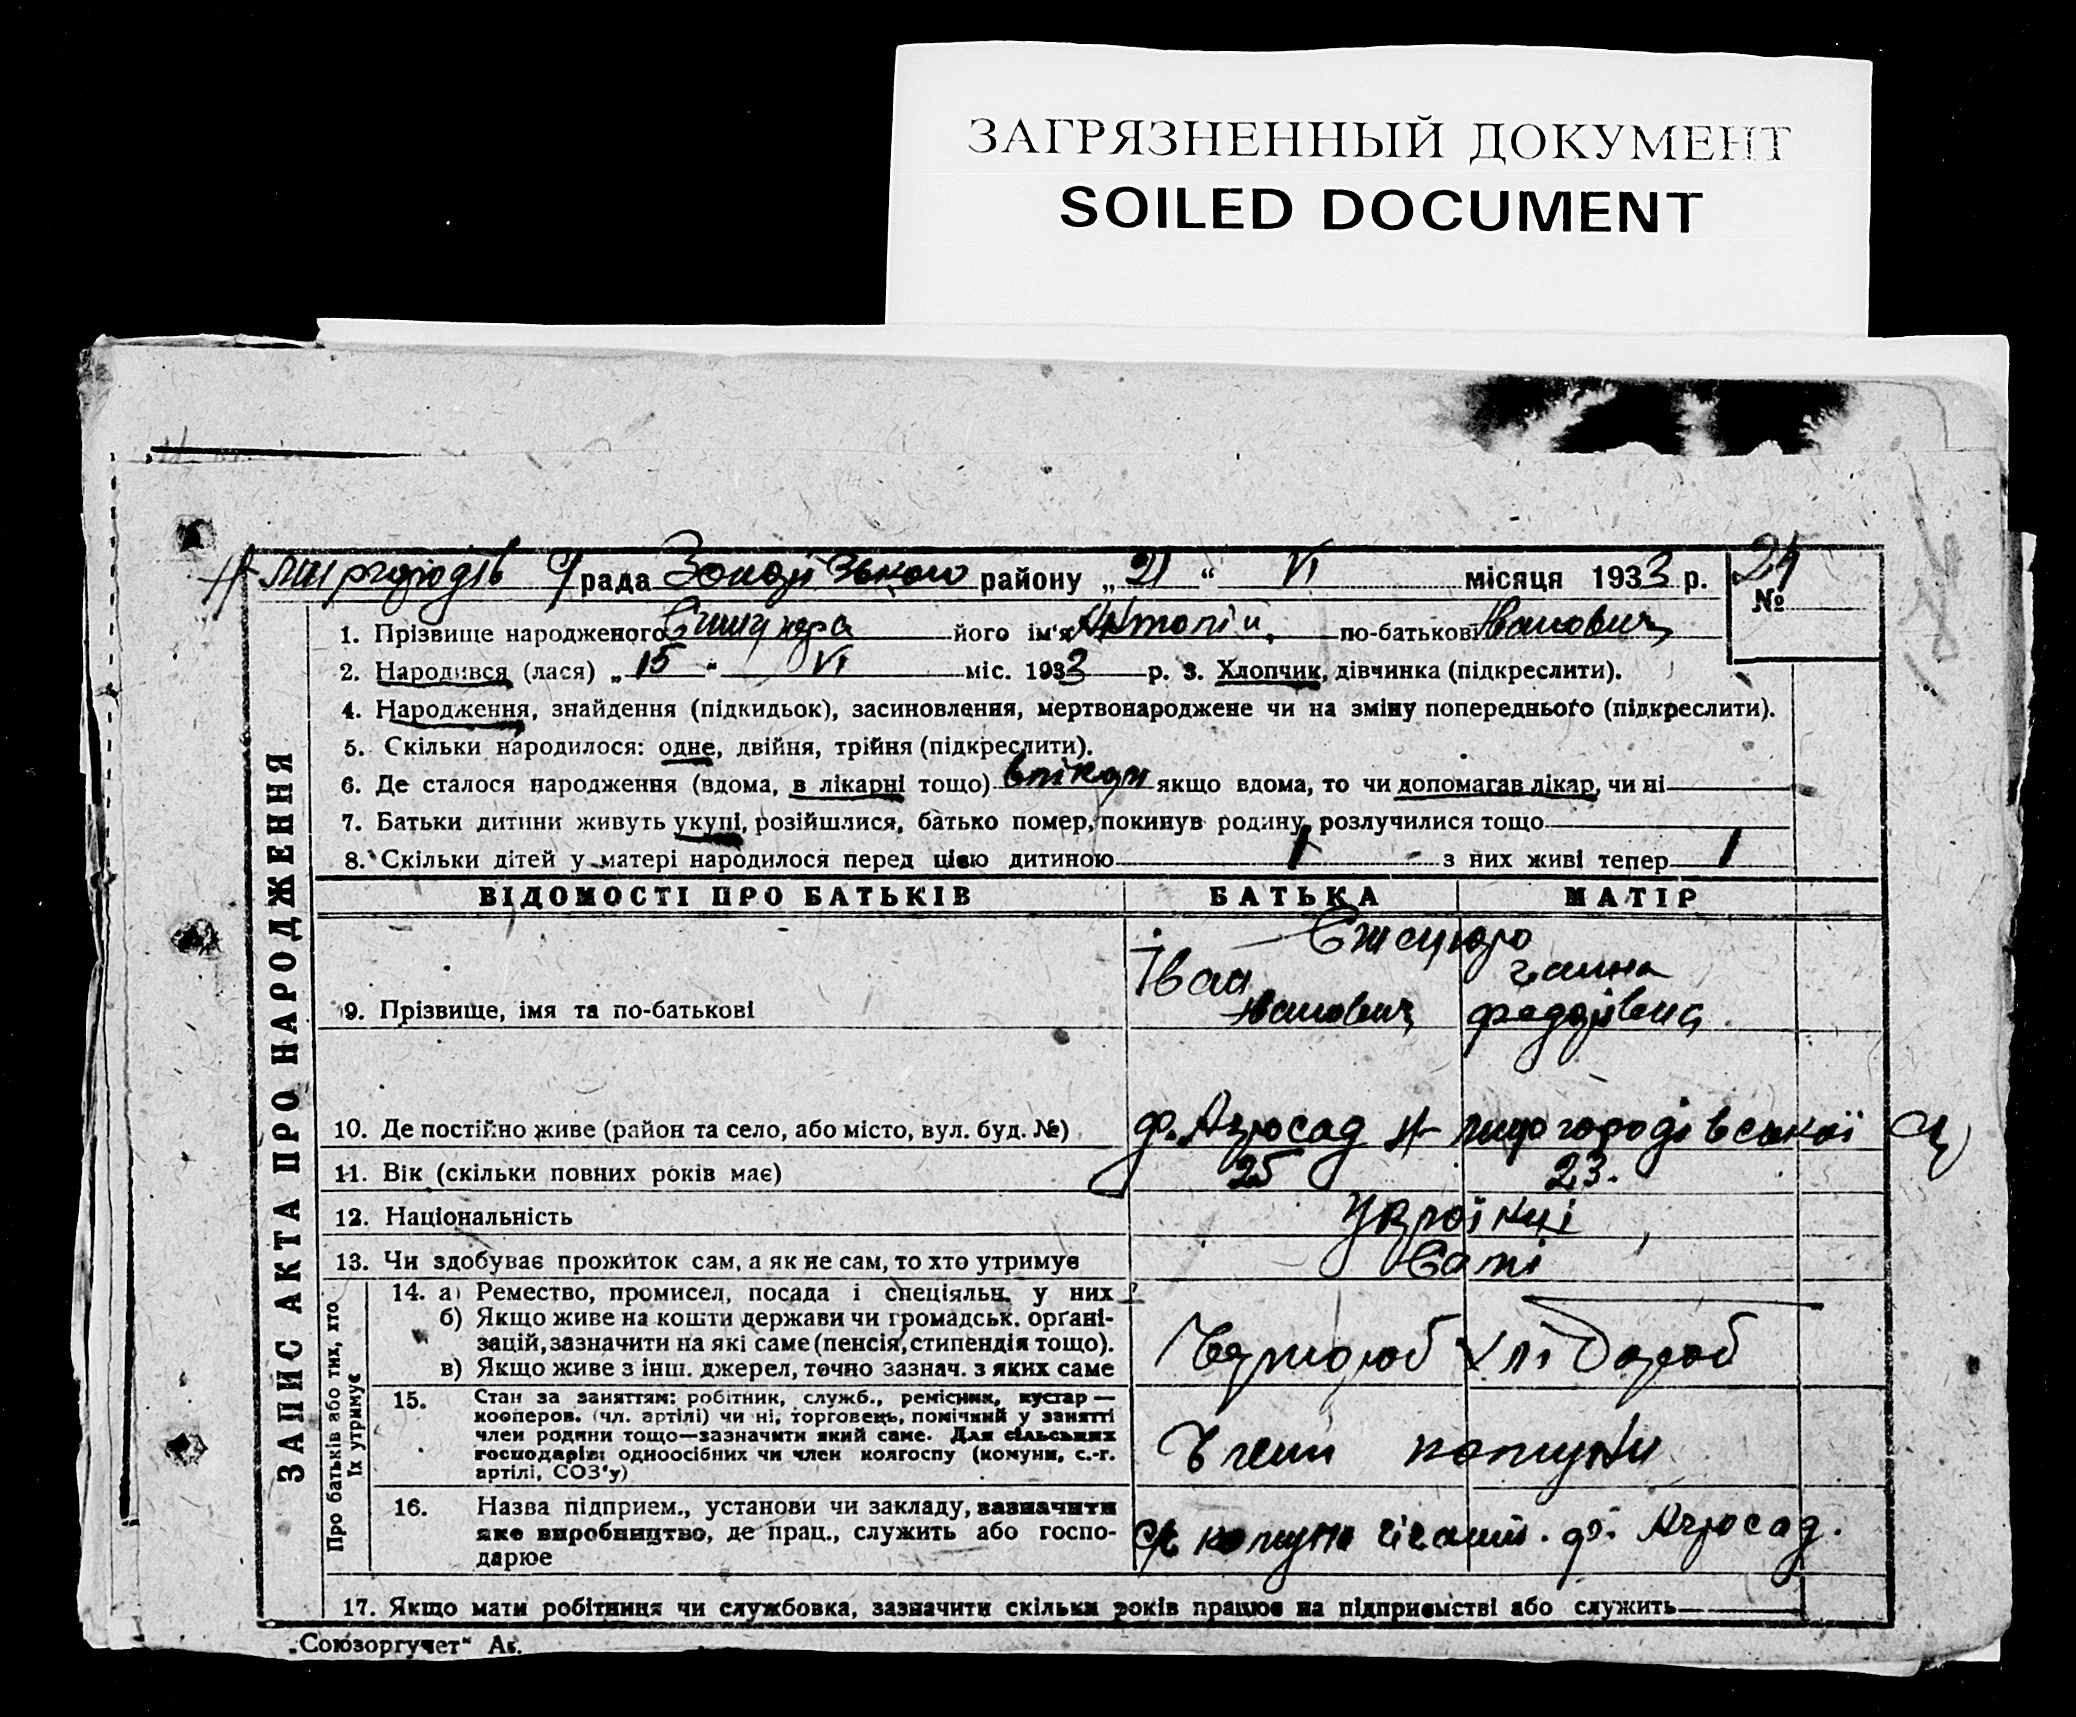 ЗАГРЯЗНЕННЫЙ ДОКУМЕНТ
SOILED DOCUMENT
рада району „ 21 “ VI місяця 1933 р. №
1. Прізвище народженого його ім'я по-батькові Іванович
2. Народився (лася) „ 15 " VI міс. 1933 р. 3. Хлопчик, дівчинка (підкреслити).
4. Народження, знайдення (підкидьок), засиновлення, мертвонароджене чи на зміну попереднього (підкреслити).
5. Скільки народилося: одне, двійня, трійня (підкреслити).
6. Де сталося народження (вдома, в лікарні тощо) якщо вдома, то чи допомагав лікар, чи ні
7. Батьки дитини живуть укупі, розійшлися, батько помер, покинув родину, розлучилися тощо
8. Скільки дітей у матері народилося перед цією дитиною 1 з них живі тепер 1
ЗАПИС АКТА ПРО НАРОДЖЕННЯ
ВІДОМОСТІ ПРО БАТЬКІВ БАТЬКА МАТІР
Іван Ганна
9. Прізвище, імя та по-батькові Іванович Федорівна
10. Де постійно живе (район та село, або місто, вул. буд. №) ф. Агросад
11. Вік (скільки повних років має) 25 23.
12. Національність Українці
13. Чи здобуває прожиток сам, а як не сам, то хто утримує Самі
Про батьків або тих, хто
їх утримує
14. а) Ремество, промисел, посада і спеціяльн. у них
б) Якщо живе на кошти держави чи громадськ. орґані-
зацій, зазначити на які саме (пенсія, стипендія тощо).
в) Якщо живе з інш. джерел, точно зазнач. з яких саме хлібороб хлібороб
15. Стан за заняттям: робітник, служб., ремісник, кустар —
кооперов. (чл. артілі) чи ні, торговець, помічний у занятті
член родини тощо—зазначити який саме. Для сільських
господарів: одноосібних чи член колгоспу (комуни, с.-г.
артілі, СОЗ'у) Члени комуни
16. Назва підприєм., установи чи закладу, зазначити
яке виробництво, де прац., служить або госпо-
дарює комуна ф. Агросад.
17. Якщо мати робітниця чи службовка, зазначити скільки років працює на підприємстві або служить
„Союзоргучет“